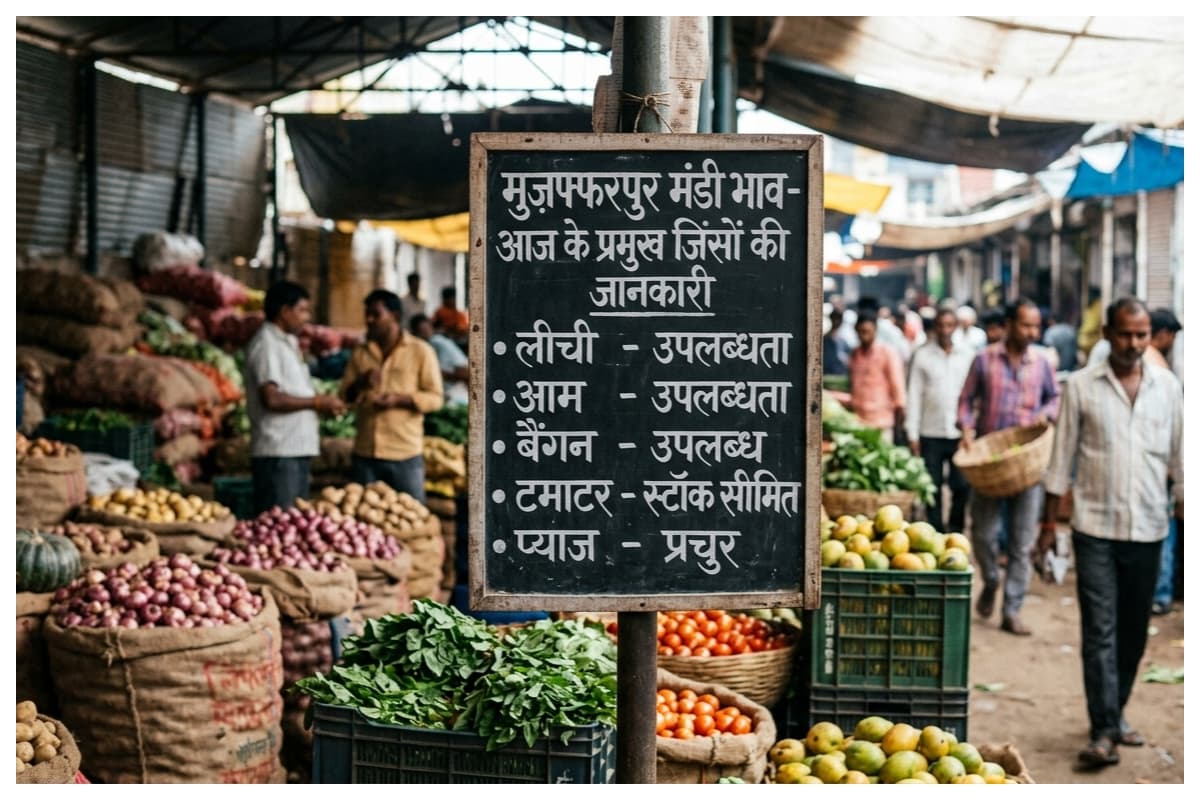 मुज़फ्फरपुर मंडी भाव-
आज के प्रमुख जिंसों की
जानकारी
• लीची - उपलब्धता
• आम - उपलब्धता
• बैंगन - उपलब्ध
• टमाटर - स्टॉक सीमित
• प्याज - प्रचुर